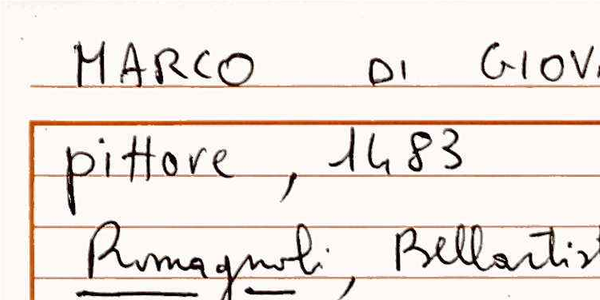 MARCO DI GIOV
pittore, 1483
Romagnoli, Bellartist